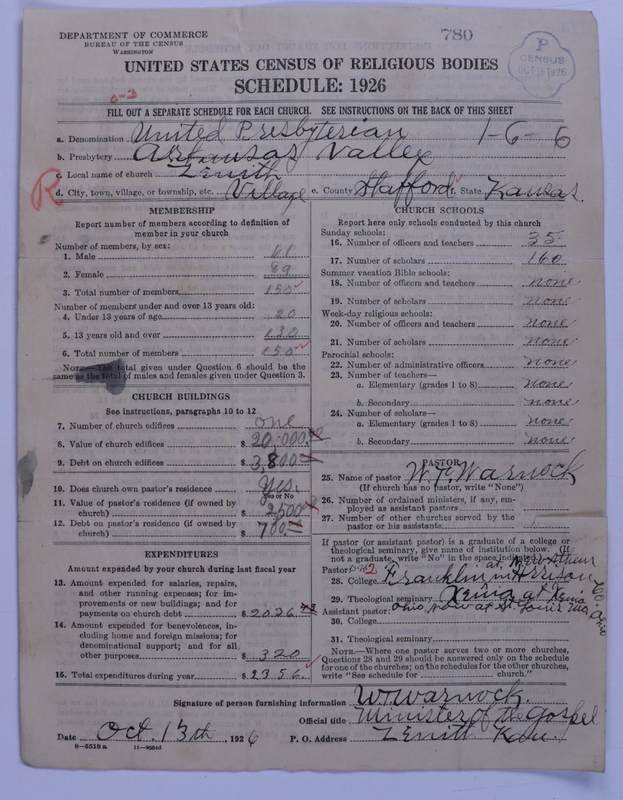 DEPARTMENT OF COMMERCE
BUREAU OF THE CENSUS
WASHINGTON
780
P
CENSUS
OCT 18 1926
UNITED STATES CENSUS OF RELIGIOUS BODIES
SCHEDULE: 1926
0-3
FILL OUT A SEPARATE SCHEDULE FOR EACH CHURCH. SEE INSTRUCTIONS ON THE BACK OF THIS SHEET
a. Denomination United Presbyterian 1-6-6
b. Presbytery Arkansas Valley
c. Local name of church Zenith
R
d. City, town, village, or township, etc. Village e. County Stafford f. State Kansas.
MEMBERSHIP
Report number of members according to definition of
member in your church
Number of members, by sex:
1. Male 61
2. Female 89
3. Total number of members 150
Number of members under and over 13 years old:
4. Under 13 years of age 20
5. 13 years old and over 130
6. Total number of members 150
NOTE.—The total given under Question 6 should be the
same as the total of males and females given under Question 3.
CHURCH BUILDINGS
See instructions, paragraphs 10 to 12
7. Number of church edifices one
8. Value of church edifices $ 20,000.00
9. Debt on church edifices $ 3,800
10. Does church own pastor's residence Yes.
Yes or No
11. Value of pastor's residence (if owned by
church) $ 2,500
12. Debt on pastor's residence (if owned by
church) $ 700
EXPENDITURES
Amount expended by your church during last fiscal year
13. Amount expended for salaries, repairs,
and other running expenses; for im-
provements or new buildings; and for
payments on church debt $ 2026
14. Amount expended for benevolences, in-
cluding home and foreign missions; for
denominational support; and for all
other purposes $ 320
15. Total expenditures during year $ 2356.
CHURCH SCHOOLS
Report here only schools conducted by this church
Sunday schools:
16. Number of officers and teachers 35
17. Number of scholars 160
Summer vacation Bible schools:
18. Number of officers and teachers none
19. Number of scholars none
Week-day religious schools:
20. Number of officers and teachers none
21. Number of scholars none
Parochial schools:
22. Number of administrative officers none
23. Number of teachers—
a. Elementary (grades 1 to 8) none
b. Secondary none
24. Number of scholars—
a. Elementary (grades 1 to 8) none
b. Secondary none
PASTOR
25. Name of pastor W. T. Warnock
(If church has no pastor, write "None")
26. Number of ordained ministers, if any, em-
ployed as assistant pastors
27. Number of other churches served by the
pastor or his assistants
If pastor (or assistant pastor) is a graduate of a college or
theological seminary, give name of institution below. (If
not a graduate, write "No" in the space indicated)
Pastor: at New Athens
28. College Franklin in Harrison Co. Ohio
29. Theological seminary Xenia at Xenia
Assistant pastor: Ohio, now at St. Louis Mo.
30. College
31. Theological seminary
NOTE.—Where one pastor serves two or more churches,
Questions 28 and 29 should be answered only on the schedule
for one of the churches; on the schedules for the other churches,
write "See schedule for church."
Signature of person furnishing information W. T. Warnock.
Official title Minister of the Gospel
Date Oct. 13th, 1926 P. O. Address Zenith Kan.
8—5518 a 11—9654d